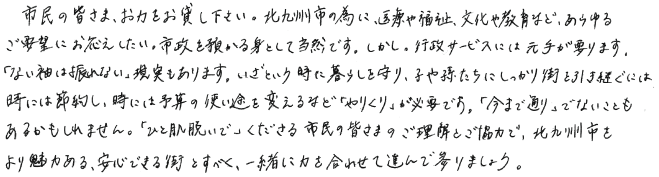 市民の皆さま、お力をお貸し下さい。北九州市の為に、医療や福祉、文化や教育など、あらゆる
ご要望にお応えしたい。市政を預かる身として当然です。しかし。行政サービスには元手が要ります。
「ない袖は振れない」現実もあります。いざという時に暮らしを守り、子や孫たちにしっかり街を引き継ぐには
時には節約し、時には予算の使い途を変えるなど「やりくり」が必要です。「今まで通り」でないことも
あるかもしれません。「ひと肌脱いで」くださる市民の皆さまのご理解とご協力で、北九州市を
より魅力ある、安心できる街とすべく、一緒に力を合わせて進んで参りましょう。